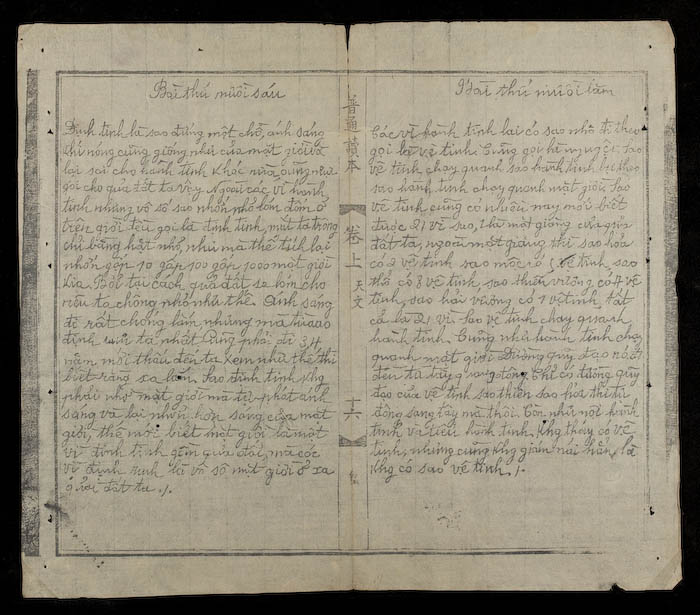 Bài thứ mười lăm
Các vì hành tinh lại có sao nhỏ đi theo
gọi là vệ tinh. Cũng gọi là mặt nguyệt. Sao
vệ tinh chạy quanh sao hành tinh, lại theo
sao hành tinh chạy quanh mặt giời. Sao
vệ tinh cũng có nhiều nay mới biết
được 21 vì sao, 1 là mặt giăng của giữa
đất ta, ngoài mặt giăng thì sao hỏa
có 2 vệ tinh sao mộc có 5 vệ tinh, sao
thổ có 8 vệ tinh sao thiên vương có 4 vệ
tinh, sao hải vương có 1 vệ tinh, tất
cả là 21 vì. Sao vệ tinh chạy quanh
hành tinh. Cũng như hành tinh chạy
quanh mặt giời. Đường quỹ đạo nó
đều từ tây sang đông. Chỉ có đường quỹ
đạo của vệ tinh sao thiên sao hải thì từ
đông sang tây mà thôi. Còn như nội hành
tinh và tiểu hành tinh, khg thấy có vệ
tinh, nhưng cũng khg giám nói hẳn, là
khg có sao vệ tinh ./.
普通讀本
卷上 天文
十六
Bài thứ mười sáu
Định tinh là sao đứng một chỗ, ánh sáng
khí nóng cũng giống như của mặt giời và
lại soi cho hành tinh khác nữa, cũng như
soi cho quả đất ta vậy. Ngoài các vì hành
tinh những vô số sao nhớn nhỏ lốm đốm ở
trên giời đều gọi là định tinh, mắt ta trông
chỉ bằng hạt nhỏ, như mà thể tích lại
nhớn gấp 10 gấp 100 gấp 1000 mặt giời
kia. Bởi tại cách quả đất xa lắm cho
nên ta trông nhỏ như thế. Ánh sáng
đi rất chóng lắm nhưng mà sao
định tinh ta nhất cũng phải đi 3,4
năm mới thấu đến ta. Xem như thế thì
biết rằng xa lắm. Sao định tinh khg
phải nhờ mặt giời mà tự phát ánh
sáng và lại nhớn hơn sáng của mặt
giời, thế mới biết mặt giời là một
vì định tinh gần quả đất, mà các
vì định tinh là vô số mặt giời ở xa
quả đất ta ./.